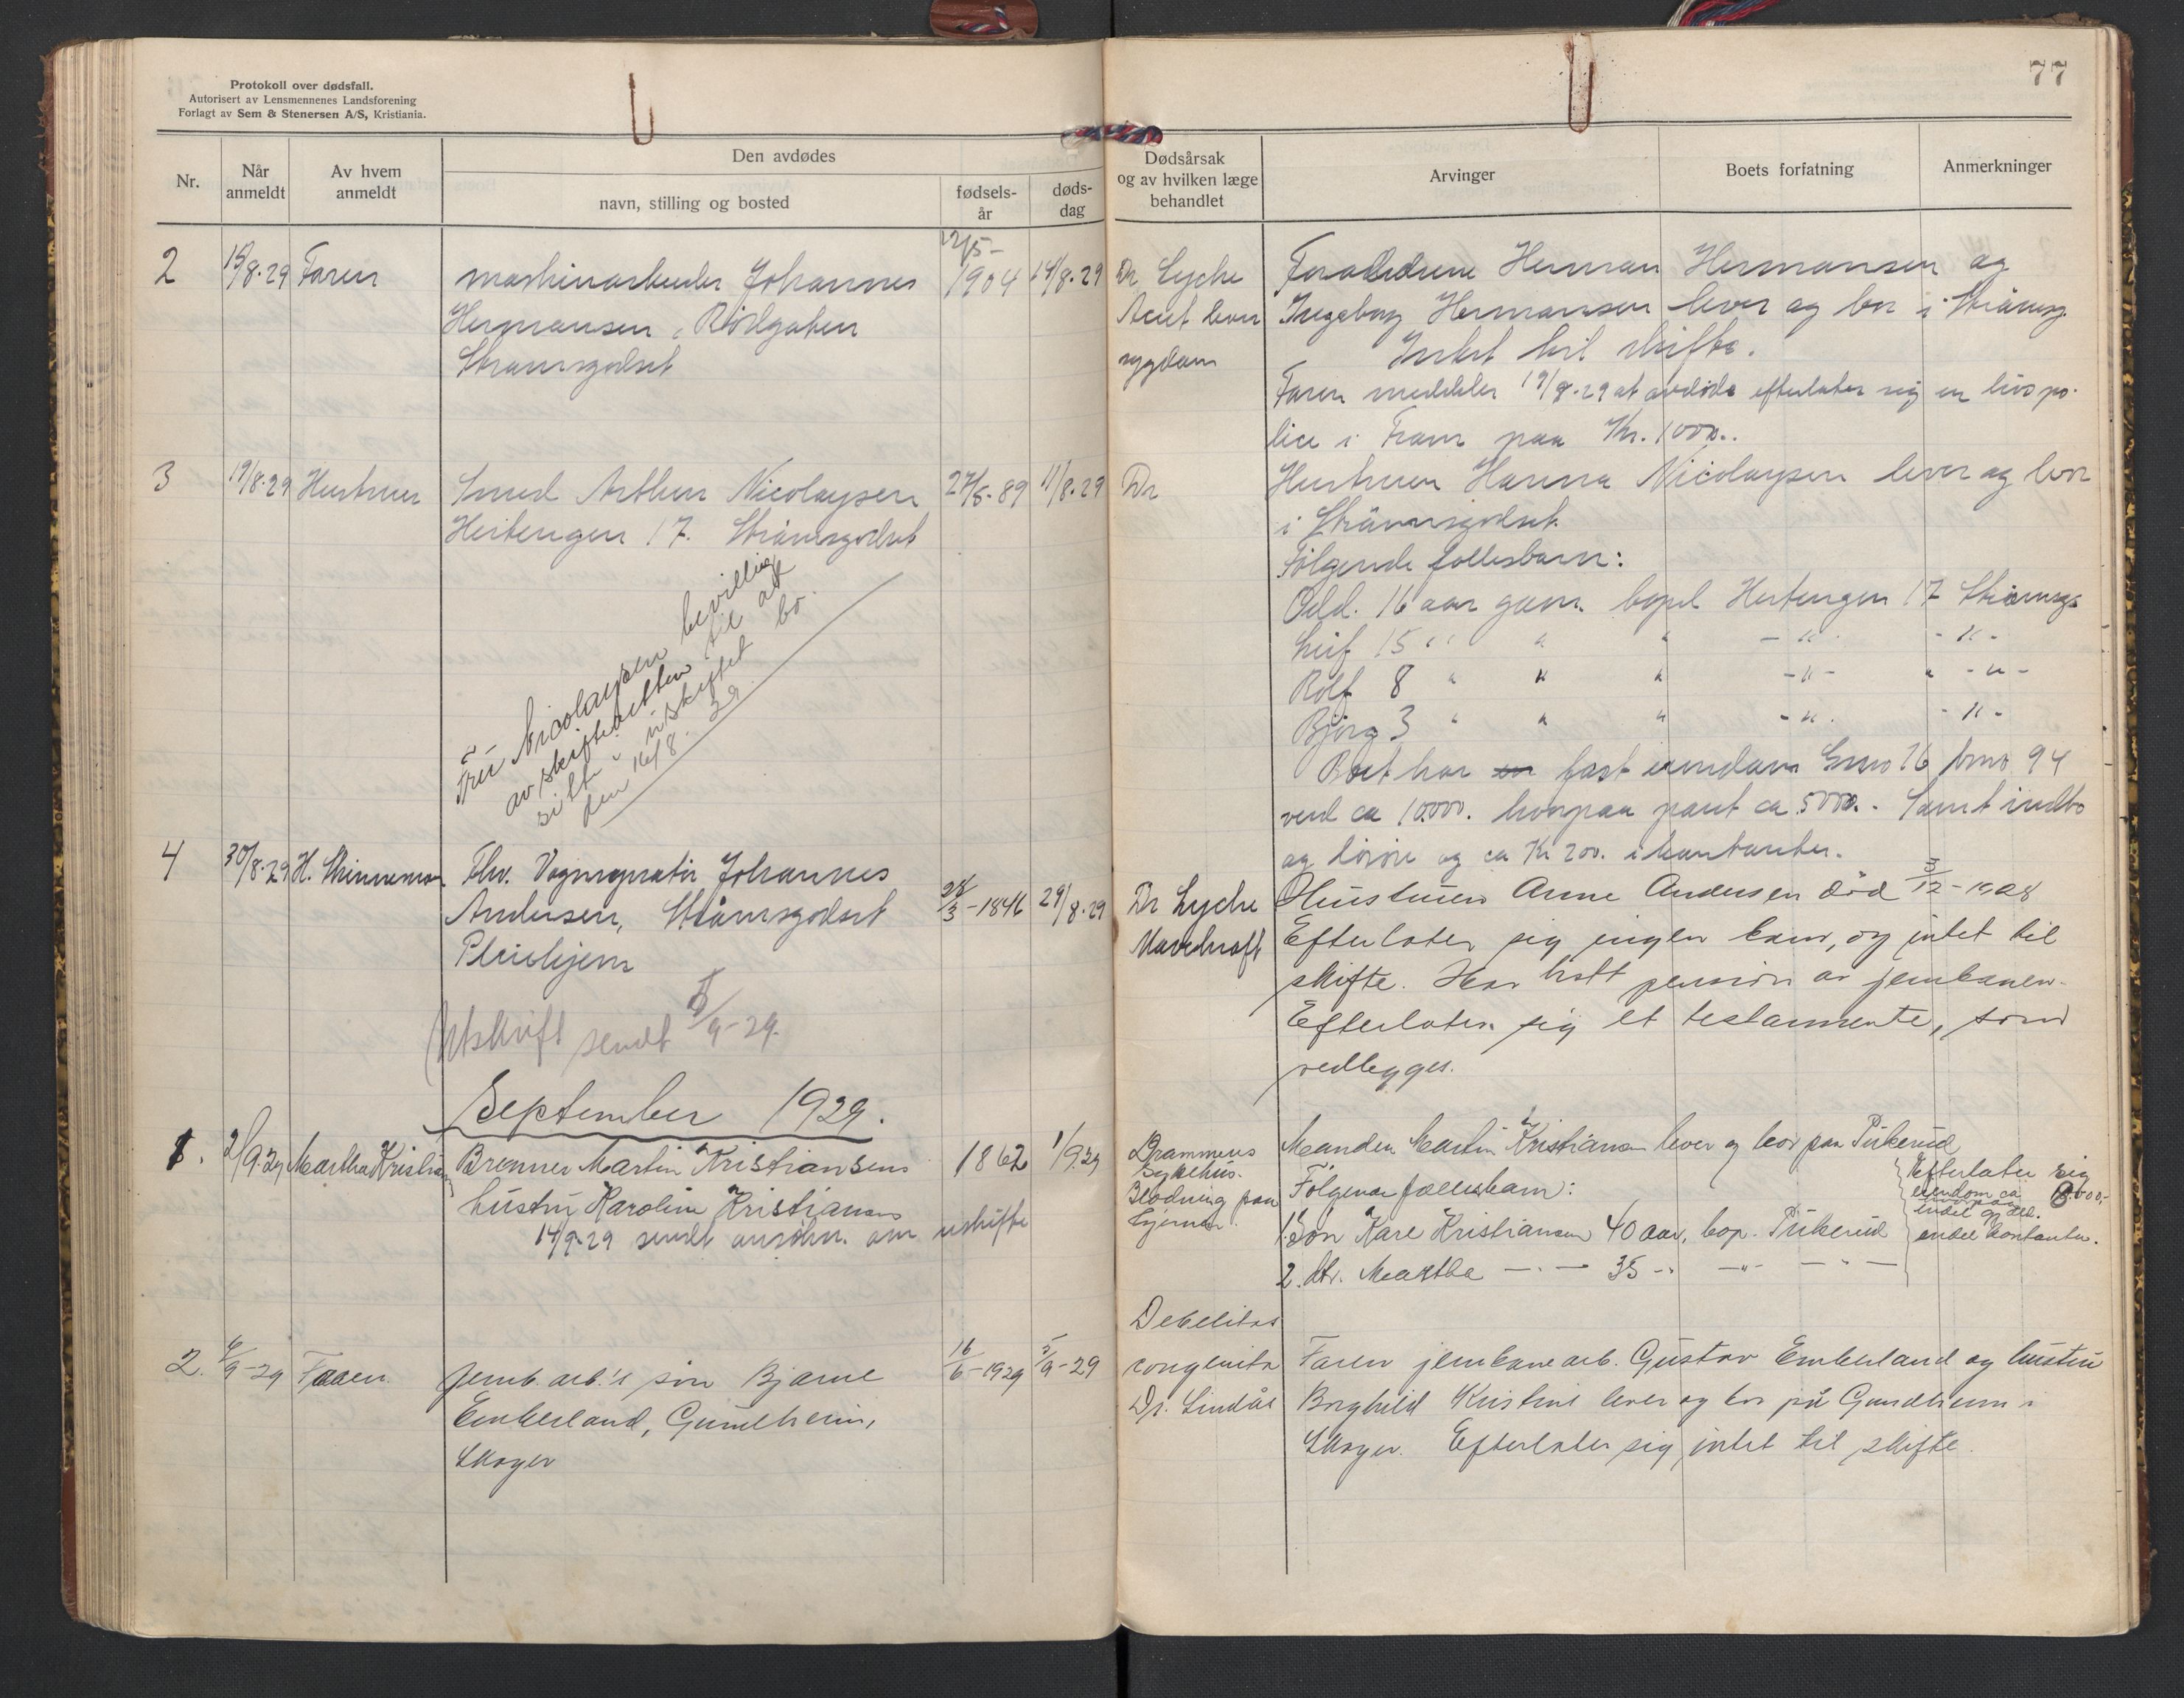 Protokoll over dødsfall.
Autorisert av Lensmennenes Landsforening
Forlagt av Sem & Stenersen A/S, Kristiania.
77
Nr.
Når anmeldt
Av hvem anmeldt
Den avdødes
navn, stilling og bosted
fødselsår
dødsdag
Dødsårsak og av hvilken læge behandlet
Arvinger
Boets forfatning
Anmerkninger
2 15/8.29 Faren
maskinarbeider Johannes
Hermansen,
Strømsgodset
12/5-1904
14/8.29
Dr Lyche
Acut lever
sygdom
Foreldrene Herman Hermansen og
Ingeborg Hermansen lever og bor i Strømsg.
Intet til skifte.
Faren meddeler 19/8.29 at avdøde efterlater sig en livspo-
lice i Fram paa Kr. 1000..
3 19/8.29 Hustruen
Smed Arthur Nicolaysen
17. Strømsgodset
11/8.29
Dr
Hustruen Hanna Nicolaysen lever og bor
i Strømsgodset
Følgende fellesbarn:
Odd. 16 aar gam. bopel 17 Strømsg.
Leif 15 " " " - " - - " -
Rolf 8 " " " - " - " - " -
Bjørg 3 " " " - " - - " -
Boet har en fast eiendom Gno 76 bno 94
verd ca 10.000. hvorpaa pant ca. 5000.- Samt indbo
og løsøre og ca Kr 200. i kontanter.
Fru Nicolaysen bevillig
av skifteretten til at
sitte i uskiftet bo.
den 16/8. 29
4 30/8.29 H.
Fhv. Vognoperatør Johannes
Andersen, Strømsgodset
Pleiehjem
1846
29/8.29
Dr Lyche
Hustruen Anne Andersen død 3/12-1908
Efterlater sig ingen barn, og intet til
skifte. Har hatt pension av jernbanen.
Efterlater sig et testamente, som
vedlegges.
Utskrift sendt 5/9-29.
September 1929.
1. 2/9.29 Martha Kristian
Brenner Martin Kristiansens
hustru Karoline Kristiansen
14/9-29 sendt ansøkn. om uskifte
1862
1/9.29
Drammens
Sykehus.
Blødning paa
hjernen.
Manden Martin Kristiansen lever og bor paa Pukerud
Følgende fællesbarn:
1. Søn Karl Kristiansen 40 aar, bop. Pukerud
2. dtr. Martha - " - 35 - " - " - - " -
Efterlater sig
eiendom ca 18000,-
endel gjeld.
endel kontanter.
2. 6/9-29 Faren
Jernb. arb.'s søn Bjarne
Emberland, Gundheim,
Skoger
16/6-1929
5/9-29
Debilitas
congenita
Dr. Lindås
Faren jernbanearb. Gustav Emberland og hustru
Borghild Kristine lever og bor på Gundheim i
Skoger. Efterlater sig intet til skifte.